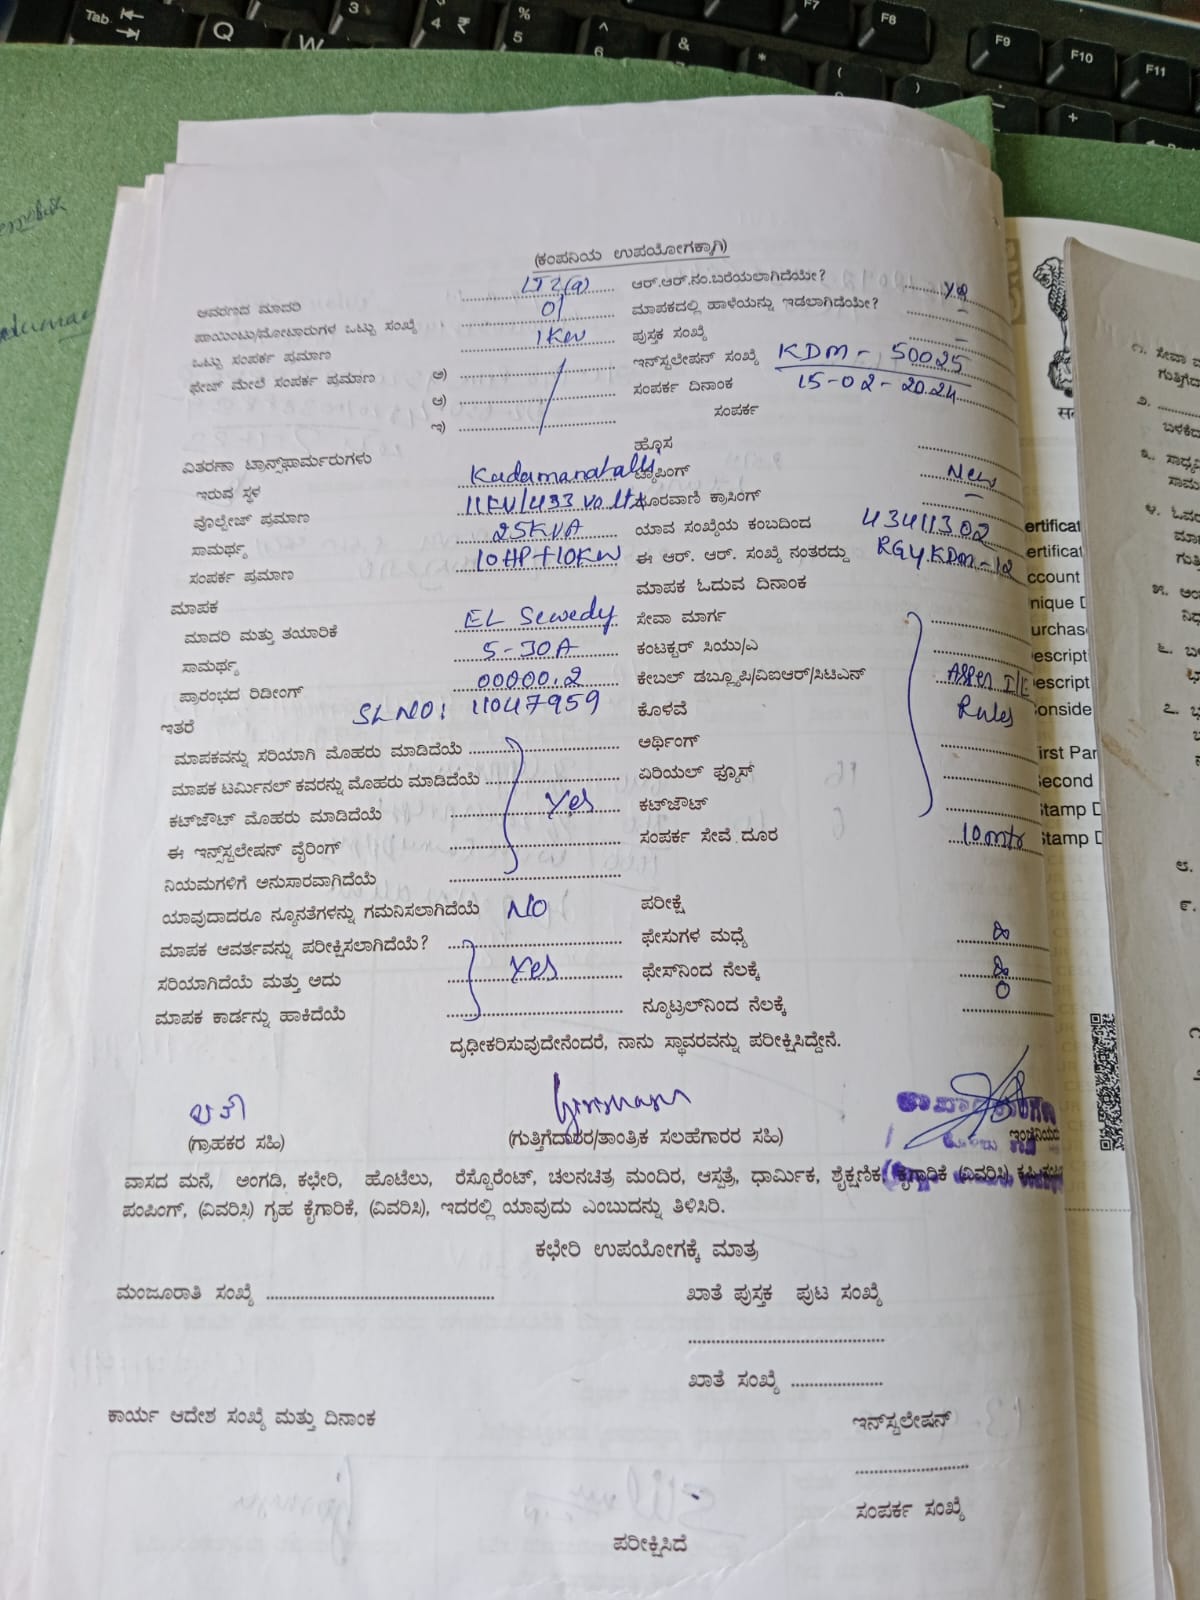 Tab
Q
W
3
4 ₹
%
5
^
6
&
F7
F8
F9
F10
F11
(ಕಂಪನಿಯ ಉಪಯೋಗಕ್ಕಾಗಿ)
ಆವರಣದ ಮಾದರಿ LT2(a) ಆರ್.ಆರ್.ನಂ.ಬರೆಯಲಾಗಿದೆಯೇ? yes
ಪಾಯಿಂಟು/ಮೋಟಾರುಗಳ ಒಟ್ಟು ಸಂಖ್ಯೆ 01 ಮಾಪಕದಲ್ಲಿ ಹಾಳೆಯನ್ನು ಇಡಲಾಗಿದೆಯೇ? –
ಒಟ್ಟು ಸಂಪರ್ಕ ಪ್ರಮಾಣ 1Kw ಪುಸ್ತಕ ಸಂಖ್ಯೆ –
ಫೇಜ್ ಮೇಲೆ ಸಂಪರ್ಕ ಪ್ರಮಾಣ ಅ) ಇನ್‌ಸ್ಟಲೇಷನ್ ಸಂಖ್ಯೆ KDM – 50025
ಆ) ಸಂಪರ್ಕ ದಿನಾಂಕ 15-02-2024
ಇ) ಸಂಪರ್ಕ
ವಿತರಣಾ ಟ್ರಾನ್ಸ್‌ಫಾರ್ಮರುಗಳು ಹೊಸ
ಇರುವ ಸ್ಥಳ Kadamanahally ಟ್ಯಾಪಿಂಗ್ New
ವೊಲ್ಟೇಜ್ ಪ್ರಮಾಣ 11KV/433 Volts ದೂರವಾಣಿ ಕ್ರಾಸಿಂಗ್ –
ಸಾಮರ್ಥ್ಯ 25KVA ಯಾವ ಸಂಖ್ಯೆಯ ಕಂಬದಿಂದ 43411302
ಸಂಪರ್ಕ ಪ್ರಮಾಣ 10HP+10Kw ಈ ಆರ್. ಆರ್. ಸಂಖ್ಯೆ ನಂತರದ್ದು RGYKDM-12
ಮಾಪಕ ಮಾಪಕ ಓದುವ ದಿನಾಂಕ
ಮಾದರಿ ಮತ್ತು ತಯಾರಿಕೆ EL Sewedy ಸೇವಾ ಮಾರ್ಗ
ಸಾಮರ್ಥ್ಯ 5-30A ಕಂಟಕ್ಟರ್ ಸಿಯು/ಎ
ಪ್ರಾರಂಭದ ರಿಡೀಂಗ್ 00000.2 ಕೇಬಲ್ ಡಬ್ಲ್ಯೂಪಿ/ವಿಐಆರ್/ಸಿಟಿಎನ್ Asper I/E
ಇತರೆ SL NO: 11047959 ಕೊಳವೆ Rules
ಮಾಪಕವನ್ನು ಸರಿಯಾಗಿ ಮೊಹರು ಮಾಡಿದೆಯೆ ಅರ್ಥಿಂಗ್
ಮಾಪಕ ಟರ್ಮಿನಲ್ ಕವರನ್ನು ಮೊಹರು ಮಾಡಿದೆಯೆ ಏರಿಯಲ್ ಫ್ಯೂಸ್
ಕಟ್‌ಔಟ್ ಮೊಹರು ಮಾಡಿದೆಯೆ Yes ಕಟ್‌ಔಟ್
ಈ ಇನ್ಸ್‌ಸ್ಟಲೇಷನ್ ವೈರಿಂಗ್ ಸಂಪರ್ಕ ಸೇವೆ ದೂರ 10mtr
ನಿಯಮಗಳಿಗೆ ಅನುಸಾರವಾಗಿದೆಯೆ
ಯಾವುದಾದರೂ ನ್ಯೂನತೆಗಳನ್ನು ಗಮನಿಸಲಾಗಿದೆಯೆ NO ಪರೀಕ್ಷೆ
ಮಾಪಕ ಆವರ್ತವನ್ನು ಪರೀಕ್ಷಿಸಲಾಗಿದೆಯೆ? ಫೇಸುಗಳ ಮಧ್ಯೆ
ಸರಿಯಾಗಿದೆಯೆ ಮತ್ತು ಅದು Yes ಫೇಸ್‌ನಿಂದ ನೆಲಕ್ಕೆ
ಮಾಪಕ ಕಾರ್ಡನ್ನು ಹಾಕಿದೆಯೆ ನ್ಯೂಟ್ರಲ್‌ನಿಂದ ನೆಲಕ್ಕೆ 0
ದೃಢೀಕರಿಸುವುದೇನೆಂದರೆ, ನಾನು ಸ್ಥಾವರವನ್ನು ಪರೀಕ್ಷಿಸಿದ್ದೇನೆ.
(ಗ್ರಾಹಕರ ಸಹಿ) (ಗುತ್ತಿಗೆದಾರರ/ತಾಂತ್ರಿಕ ಸಲಹೆಗಾರರ ಸಹಿ)
ವಾಸದ ಮನೆ, ಅಂಗಡಿ, ಕಛೇರಿ, ಹೊಟೆಲು, ರೆಸ್ಟೊರೆಂಟ್, ಚಲನಚಿತ್ರ ಮಂದಿರ, ಆಸ್ಪತ್ರೆ, ಧಾರ್ಮಿಕ, ಶೈಕ್ಷಣಿಕ, ಕೈಗಾರಿಕೆ (ವಿವರಿಸಿ),
ಪಂಪಿಂಗ್, (ವಿವರಿಸಿ) ಗೃಹ ಕೈಗಾರಿಕೆ, (ವಿವರಿಸಿ), ಇದರಲ್ಲಿ ಯಾವುದು ಎಂಬುದನ್ನು ತಿಳಿಸಿರಿ.
ಕಛೇರಿ ಉಪಯೋಗಕ್ಕೆ ಮಾತ್ರ
ಮಂಜೂರಾತಿ ಸಂಖ್ಯೆ ಖಾತೆ ಪುಸ್ತಕ ಪುಟ ಸಂಖ್ಯೆ
ಖಾತೆ ಸಂಖ್ಯೆ
ಕಾರ್ಯ ಆದೇಶ ಸಂಖ್ಯೆ ಮತ್ತು ದಿನಾಂಕ ಇನ್‌ಸ್ಟಲೇಷನ್
ಸಂಪರ್ಕ ಸಂಖ್ಯೆ
ಪರೀಕ್ಷಿಸಿದೆ